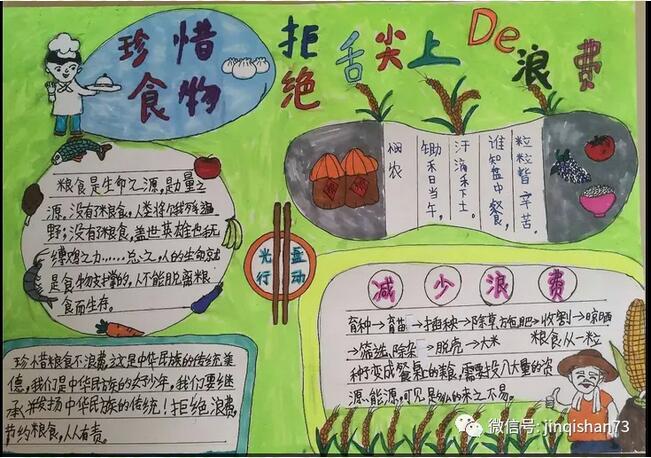 珍惜
食物
拒绝舌尖上De浪费
粮食是生命之源,是力量之
源,没有了粮食,人类将饿殍遍
野;没有了粮食,盖世英雄也无
缚鸡之力……总之,人的生命就
是食物支撑的,人不能脱离粮
食而生存。
悯农
锄禾日当午,
汗滴禾下土。
谁知盘中餐,
粒粒皆辛苦。
光盘
行动
减少浪费
育种→育苗→插秧→除草、施肥→收割→晾晒
→筛选、除杂→脱壳→大米 粮食从一粒
种变成餐桌的粮,需要投入大量的资
源、能源,可见是多么的来之不易。
珍惜粮食不浪费,这是中华民族的传统美
德,我们是中华民族的好少年,我们要继
承并发扬中华民族的传统!拒绝浪费,
节约粮食,人人有责。
微信号: jinqishan73